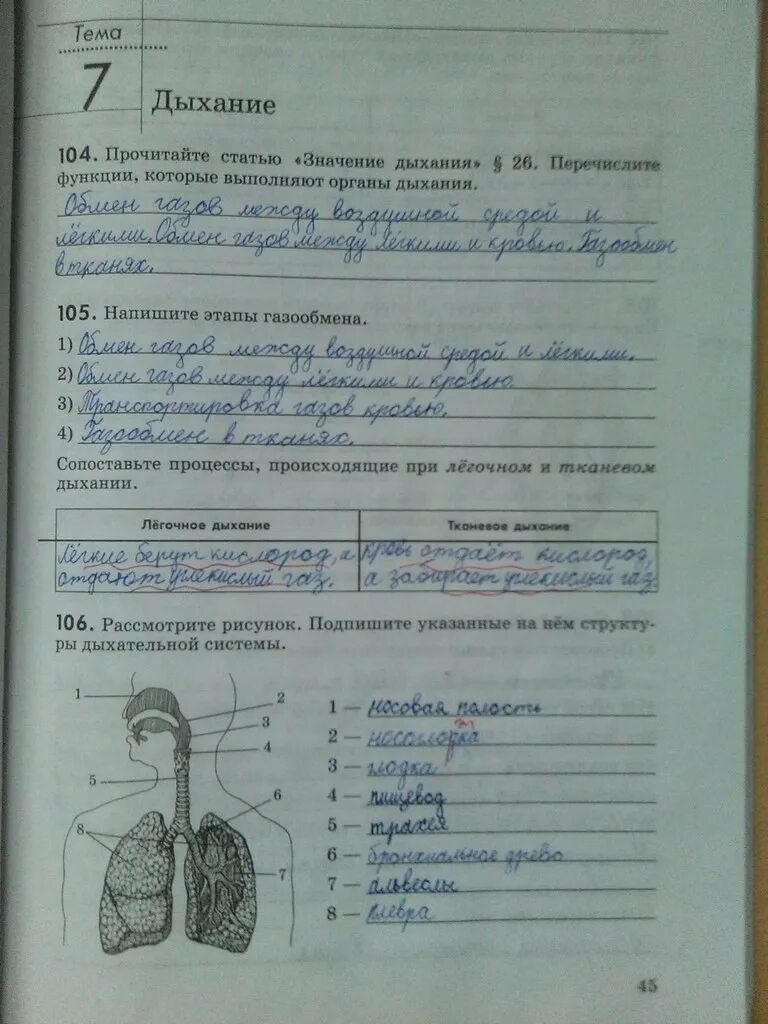 Тема
7 Дыхание
104. Прочитайте статью «Значение дыхания» § 26. Перечислите
функции, которые выполняют органы дыхания.
Обмен газов между воздушной средой и
лёгкими. Обмен газов между лёгкими и кровью. Газообмен
в тканях.
105. Напишите этапы газообмена.
1) Обмен газов между воздушной средой и лёгкими.
2) Обмен газов между лёгкими и кровью.
3) Транспортировка газов кровью.
4) Газообмен в тканях.
Сопоставьте процессы, происходящие при лёгочном и тканевом
дыхании.
Лёгочное дыхание
Тканевое дыхание
Лёгкие берут кислород, а
отдают углекислый газ.
кровь отдаёт кислород,
а забирает углекислый газ.
106. Рассмотрите рисунок. Подпишите указанные на нём структу-
ры дыхательной системы.
1
2
3
4
5
6
7
8
1 — носовая полость
2 — носоглодка
т
3 — глодка
4 — пищевод
5 — трахея
6 — бронхиальное древо
7 — альвеолы
8 — плевра
45